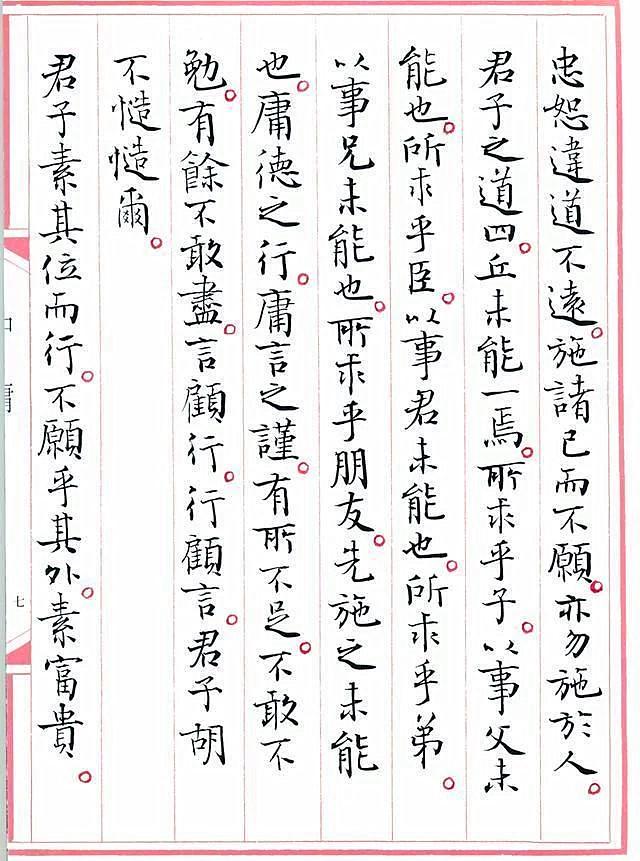 忠恕違道不遠。施諸己而不願。亦勿施於人。
君子之道四。丘未能一焉。所求乎子。以事父未
能也。所求乎臣。以事君未能也。所求乎弟。
以事兄未能也。所求乎朋友。先施之未能
也。庸德之行。庸言之謹。有所不足。不敢不
勉。有餘不敢盡。言顧行。行顧言。君子胡
不慥慥爾。
君子素其位而行。不願乎其外。素富貴。
七